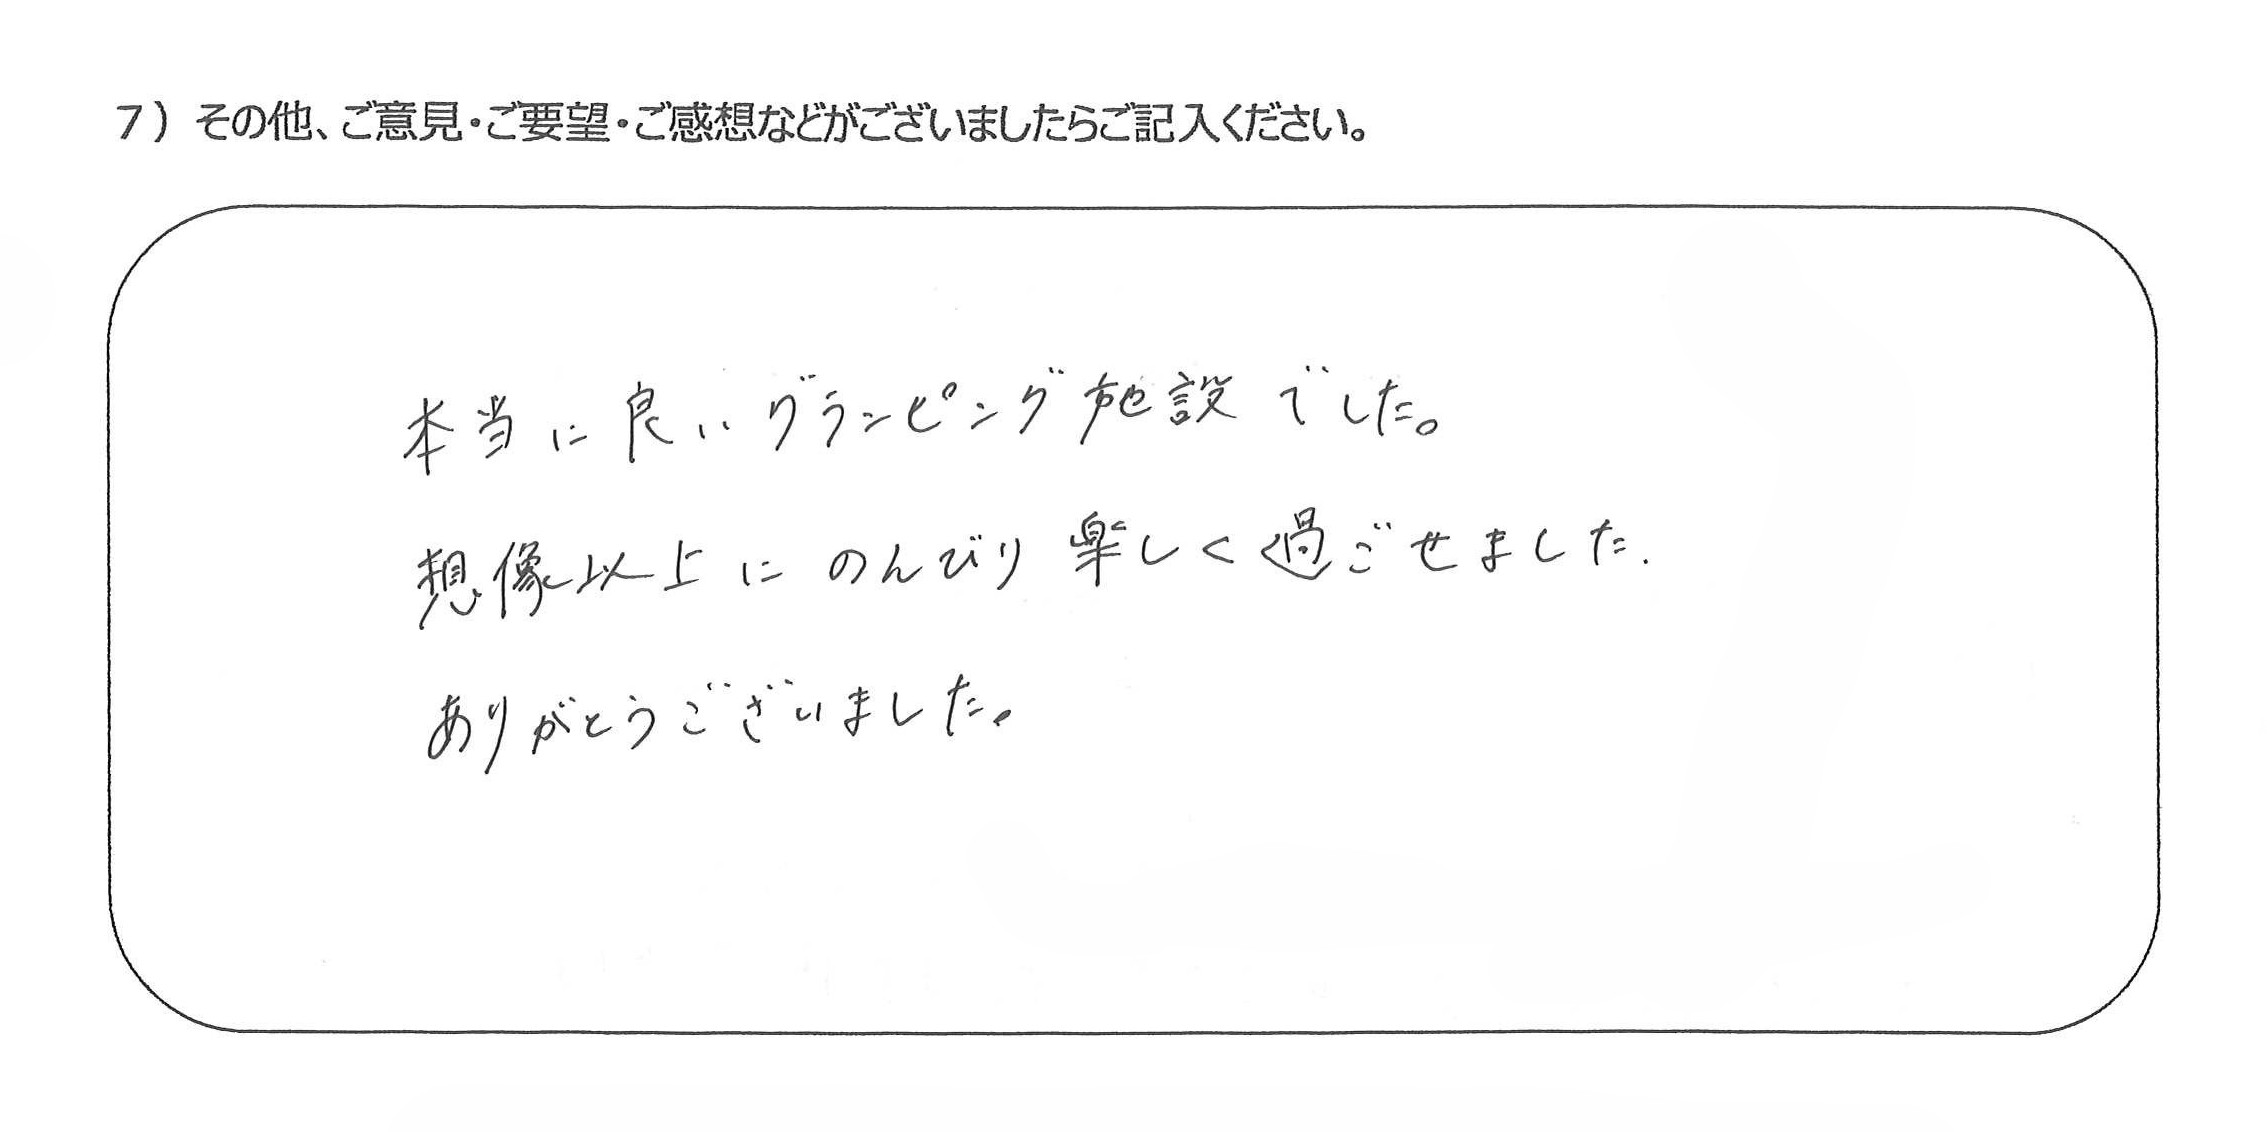 7）その他、ご意見・ご要望・ご感想などがございましたらご記入ください。
本当に良いグランピング施設でした。
想像以上にのんびり楽しく過ごせました.
ありがとうございました。